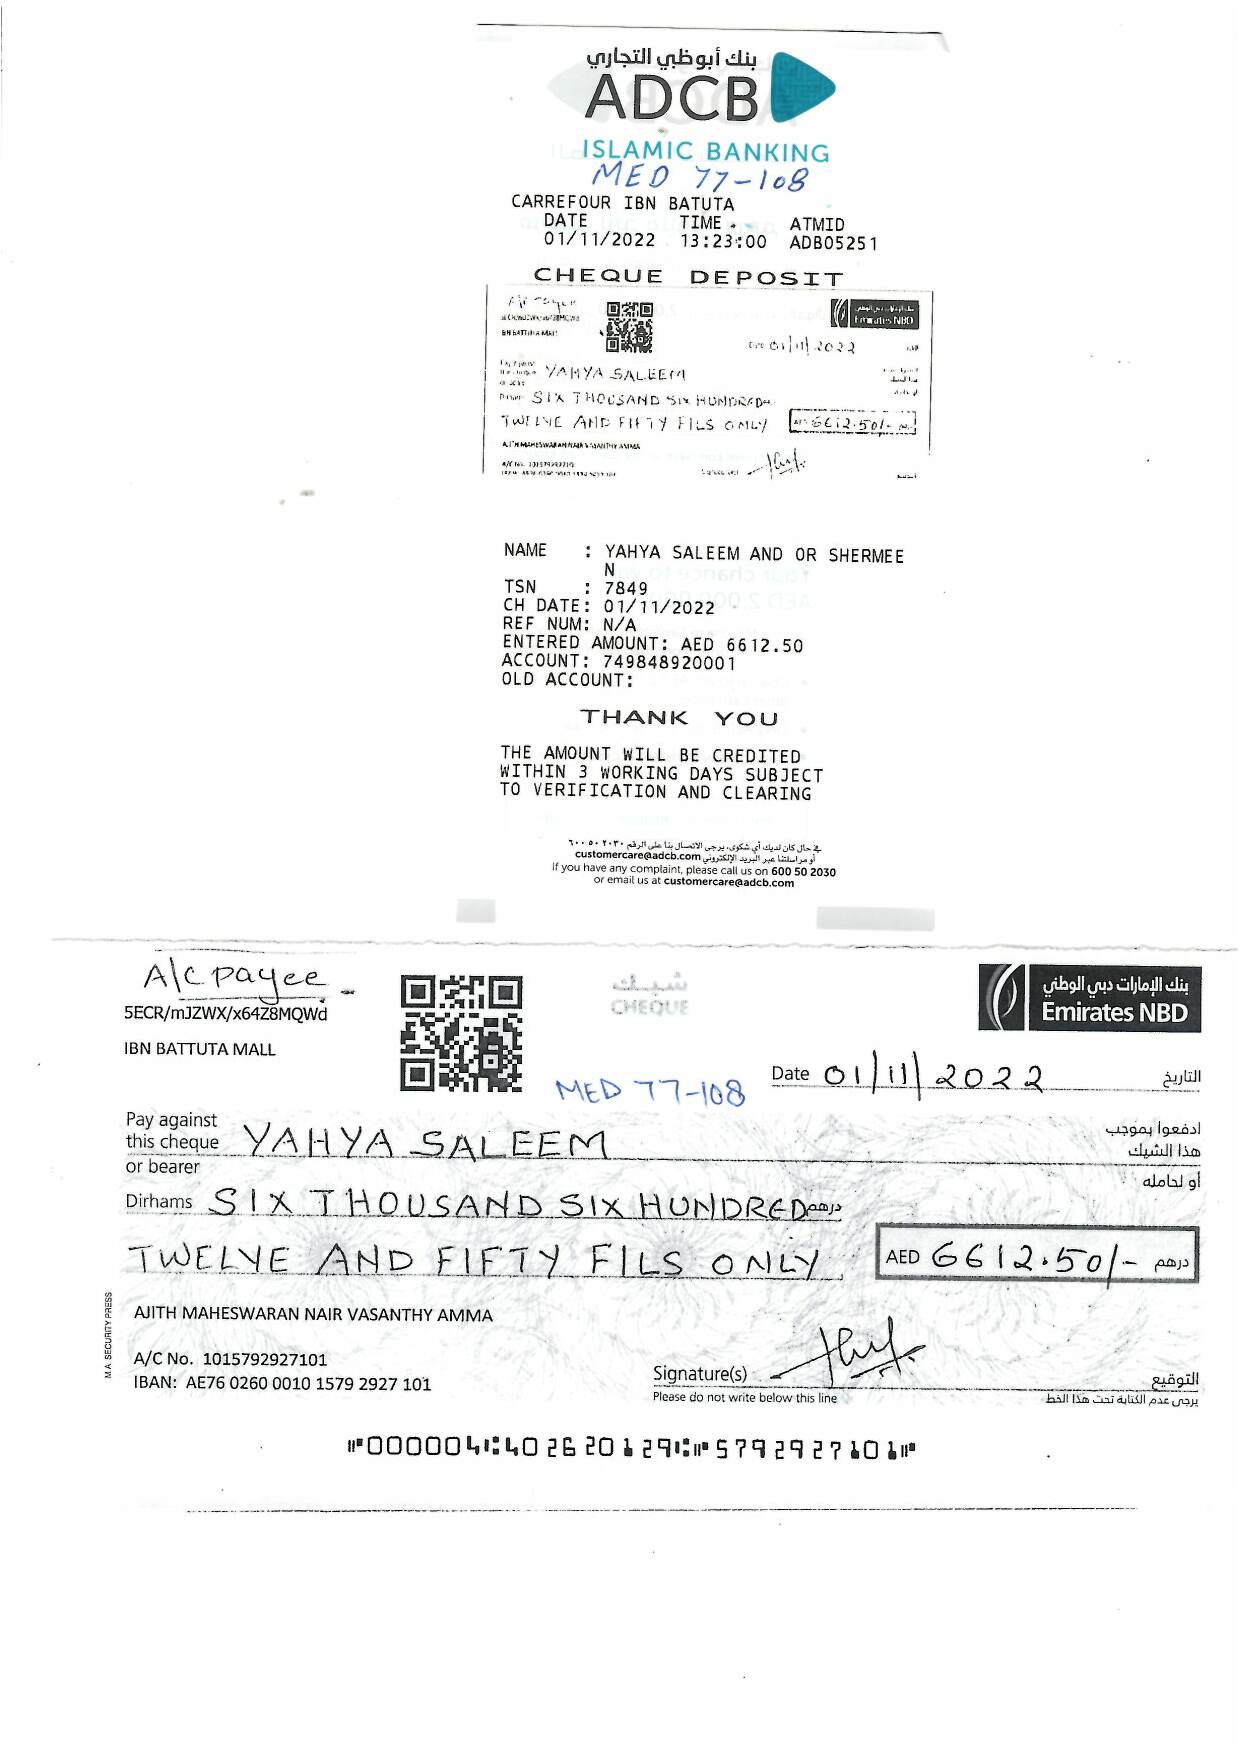 بنك أبوظبي التجاري
ADCB
ISLAMIC BANKING
MED 77-108
CARREFOUR IBN BATUTA
DATE TIME ATMID
01/11/2022 13:23:00 ADB05251
CHEQUE DEPOSIT
A/c Payee
IBN BATTUTA MALL
Emirates NBD
01/11/2022
YAHYA SALEEM
SIX THOUSAND SIX HUNDRED
TWELVE AND FIFTY FILS ONLY 6612.50/-
AJITH MAHESWARAN NAIR VASANTHY AMMA
A/C No. 1015792927101
NAME : YAHYA SALEEM AND OR SHERMEE
N
TSN : 7849
CH DATE: 01/11/2022
REF NUM: N/A
ENTERED AMOUNT: AED 6612.50
ACCOUNT: 749848920001
OLD ACCOUNT:
THANK YOU
THE AMOUNT WILL BE CREDITED
WITHIN 3 WORKING DAYS SUBJECT
TO VERIFICATION AND CLEARING
في حال كان لديك أي شكوى، يرجى الاتصال بنا على الرقم ٦٠٠ ٥٠ ٢٠٣٠
أو مراسلتنا عبر البريد الإلكتروني customercare@adcb.com
If you have any complaint, please call us on 600 50 2030
or email us at customercare@adcb.com
A\c payee
5ECR/mJZWX/x64Z8MQWd
IBN BATTUTA MALL
شيك
CHEQUE
بنك الإمارات دبي الوطني
Emirates NBD
MED 77-108
Date 01/11/2022 التاريخ
Pay against
this cheque YAHYA SALEEM
or bearer
ادفعوا بموجب
هذا الشيك
أو لحامله
Dirhams SIX THOUSAND SIX HUNDRED درهم
TWELVE AND FIFTY FILS ONLY AED 6612.50/- درهم
M.A SECURITY PRESS
AJITH MAHESWARAN NAIR VASANTHY AMMA
A/C No. 1015792927101
IBAN: AE76 0260 0010 1579 2927 101
Signature(s) التوقيع
Please do not write below this line يرجى عدم الكتابة تحت هذا الخط
⑈000004⑆402620129⑆⑈5792927101⑈